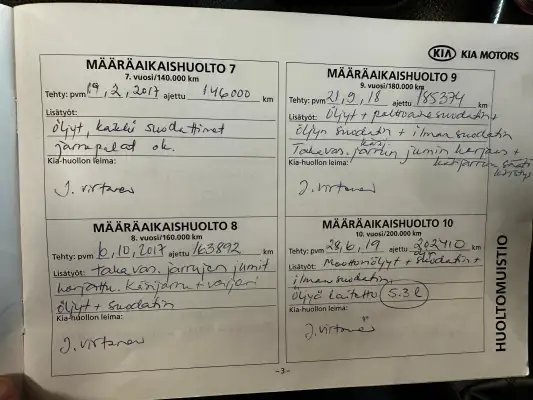 KIA KIA MOTORS
MÄÄRÄAIKAISHUOLTO 7
7. vuosi/140.000 km
Tehty: pvm 19, 2, 2017 ajettu 146000 km
Lisätyöt:
öljyt, kaikki suodattimet
jarrupalat ok.
Kia-huollon leima:
J. Virtanen
MÄÄRÄAIKAISHUOLTO 8
8. vuosi/160.000 km
Tehty: pvm 6, 10, 2017 ajettu 163892 km
Lisätyöt: taka van. jarrujen jumit
öljyt + suodatin
Kia-huollon leima:
J. Virtanen
MÄÄRÄAIKAISHUOLTO 9
9. vuosi/180.000 km
Tehty: pvm 21, 9, 18 ajettu 185374 km
Lisätyöt: öljyt + polttoainesuodatin +
öljyn suodatin + ilman suodatin
Taka van. jarrun jumin korjaus +
käsijarrun
Kia-huollon leima:
J. Virtanen
MÄÄRÄAIKAISHUOLTO 10
10. vuosi/200.000 km
Tehty: pvm 28, 6, 19 ajettu 202410 km
Lisätyöt: Moottoriöljyt + suodatin +
ilmansuodatin
öljyä laitettu 5.3 l
Kia-huollon leima:
J. Virtanen
HUOLTOMUISTIO
-3-